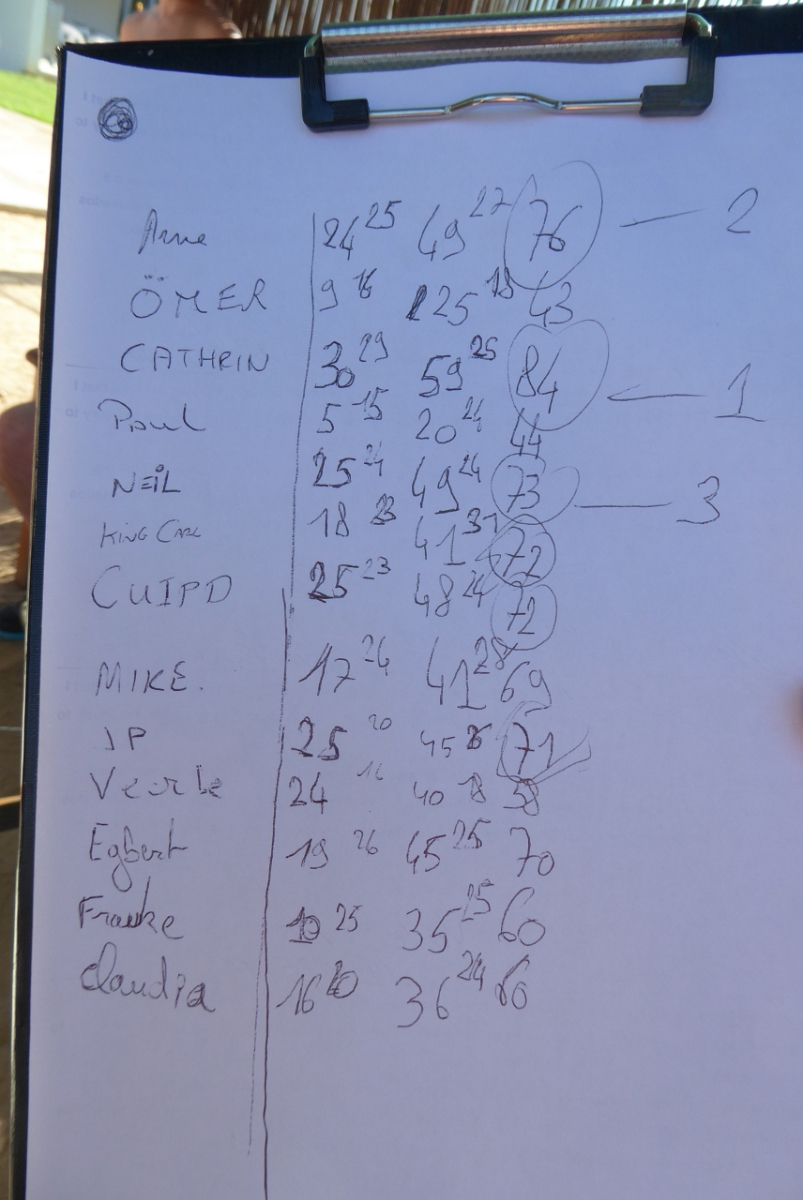 Arne 24 25 49 27 76 — 2
ÖMER 9 16 25 18 43
CATHRIN 30 29 59 25 84 — 1
Paul 5 15 20 24 44
NEIL 25 24 49 24 73 — 3
KING CARL 18 23 41 31 72
CUIPD 25 23 48 24 72
MIKE. 17 24 41 28 69
JP 25 20 45 71
24 16 40 18 58
Egbert 19 26 45 25 70
Frauke 10 25 35 25 60
Claudia 16 20 36 24 60